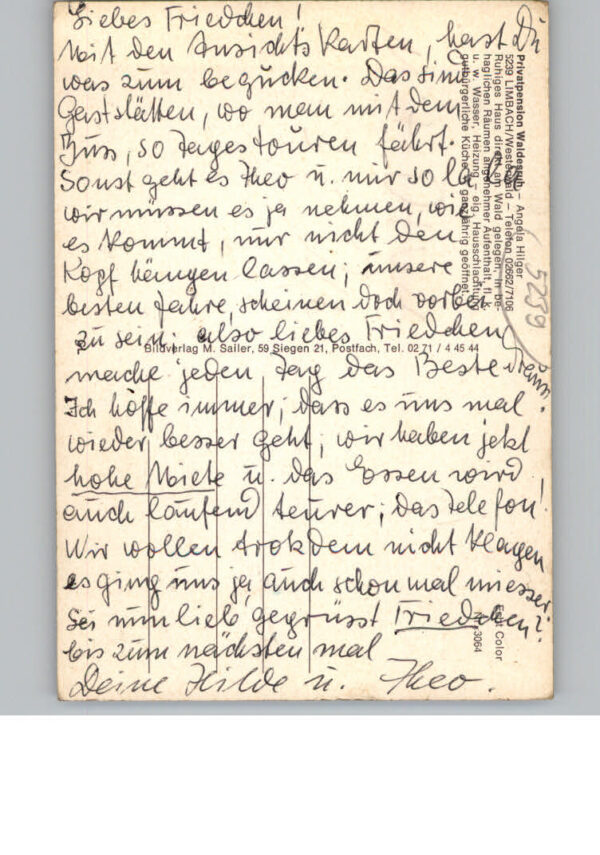 Liebes Friedchen!
Mit den Ansichts Karten, hast Du
was zum begucken. Das sind
Gaststätten, wo man mit dem
Bus, so Tagestouren fährt.
Sonst geht es Theo u. mir so la la
wir müssen es ja nehmen, wie
es kommt, nur nicht den
Kopf hängen lassen; unsere
besten Jahre, scheinen doch vorbei
zu sein; also liebes Friedchen
mache jeden Tag das Beste draus.
Ich hoffe immer, dass es uns mal
wieder besser geht, wir haben jetzt
hohe Miete u. das Essen wird
auch laufend teurer; das Telefon!
Wir wollen trokdem nicht klagen
es ging uns ja, auch schon mal mieser,
Sei nun lieb gegrüsst Friedchen!
bis zum nächsten mal
Deine Hilde u. Theo.
Privatpension Waldesruh – Angela Hilger
5239 LIMBACH/Westerwald – Telefon 02662/7106
Ruhiges Haus direkt am Wald gelegen, in be-
haglichen Räumen angenehmer Aufenthalt, fl. k.
u. w. Wasser, Heizung, eig. Hausschlachtung
gutbürgerliche Küche, ganzjährig geöffnet.
5239
Bildverlag M. Sailer, 59 Siegen 21, Postfach, Tel. 02 71 / 4 45 44
Color
3064